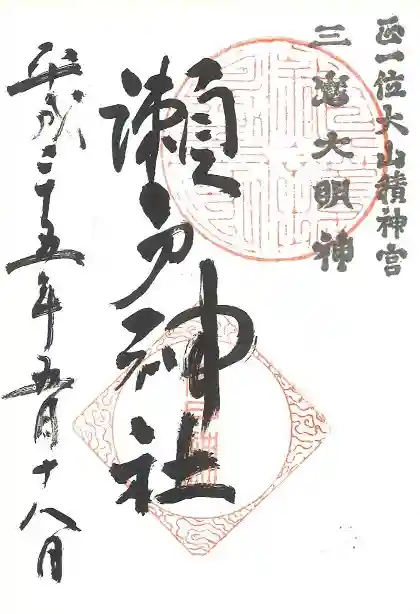 正一位大山積神宮
三嶌大明神
瀬戸神社
平成二十五年五月十八日